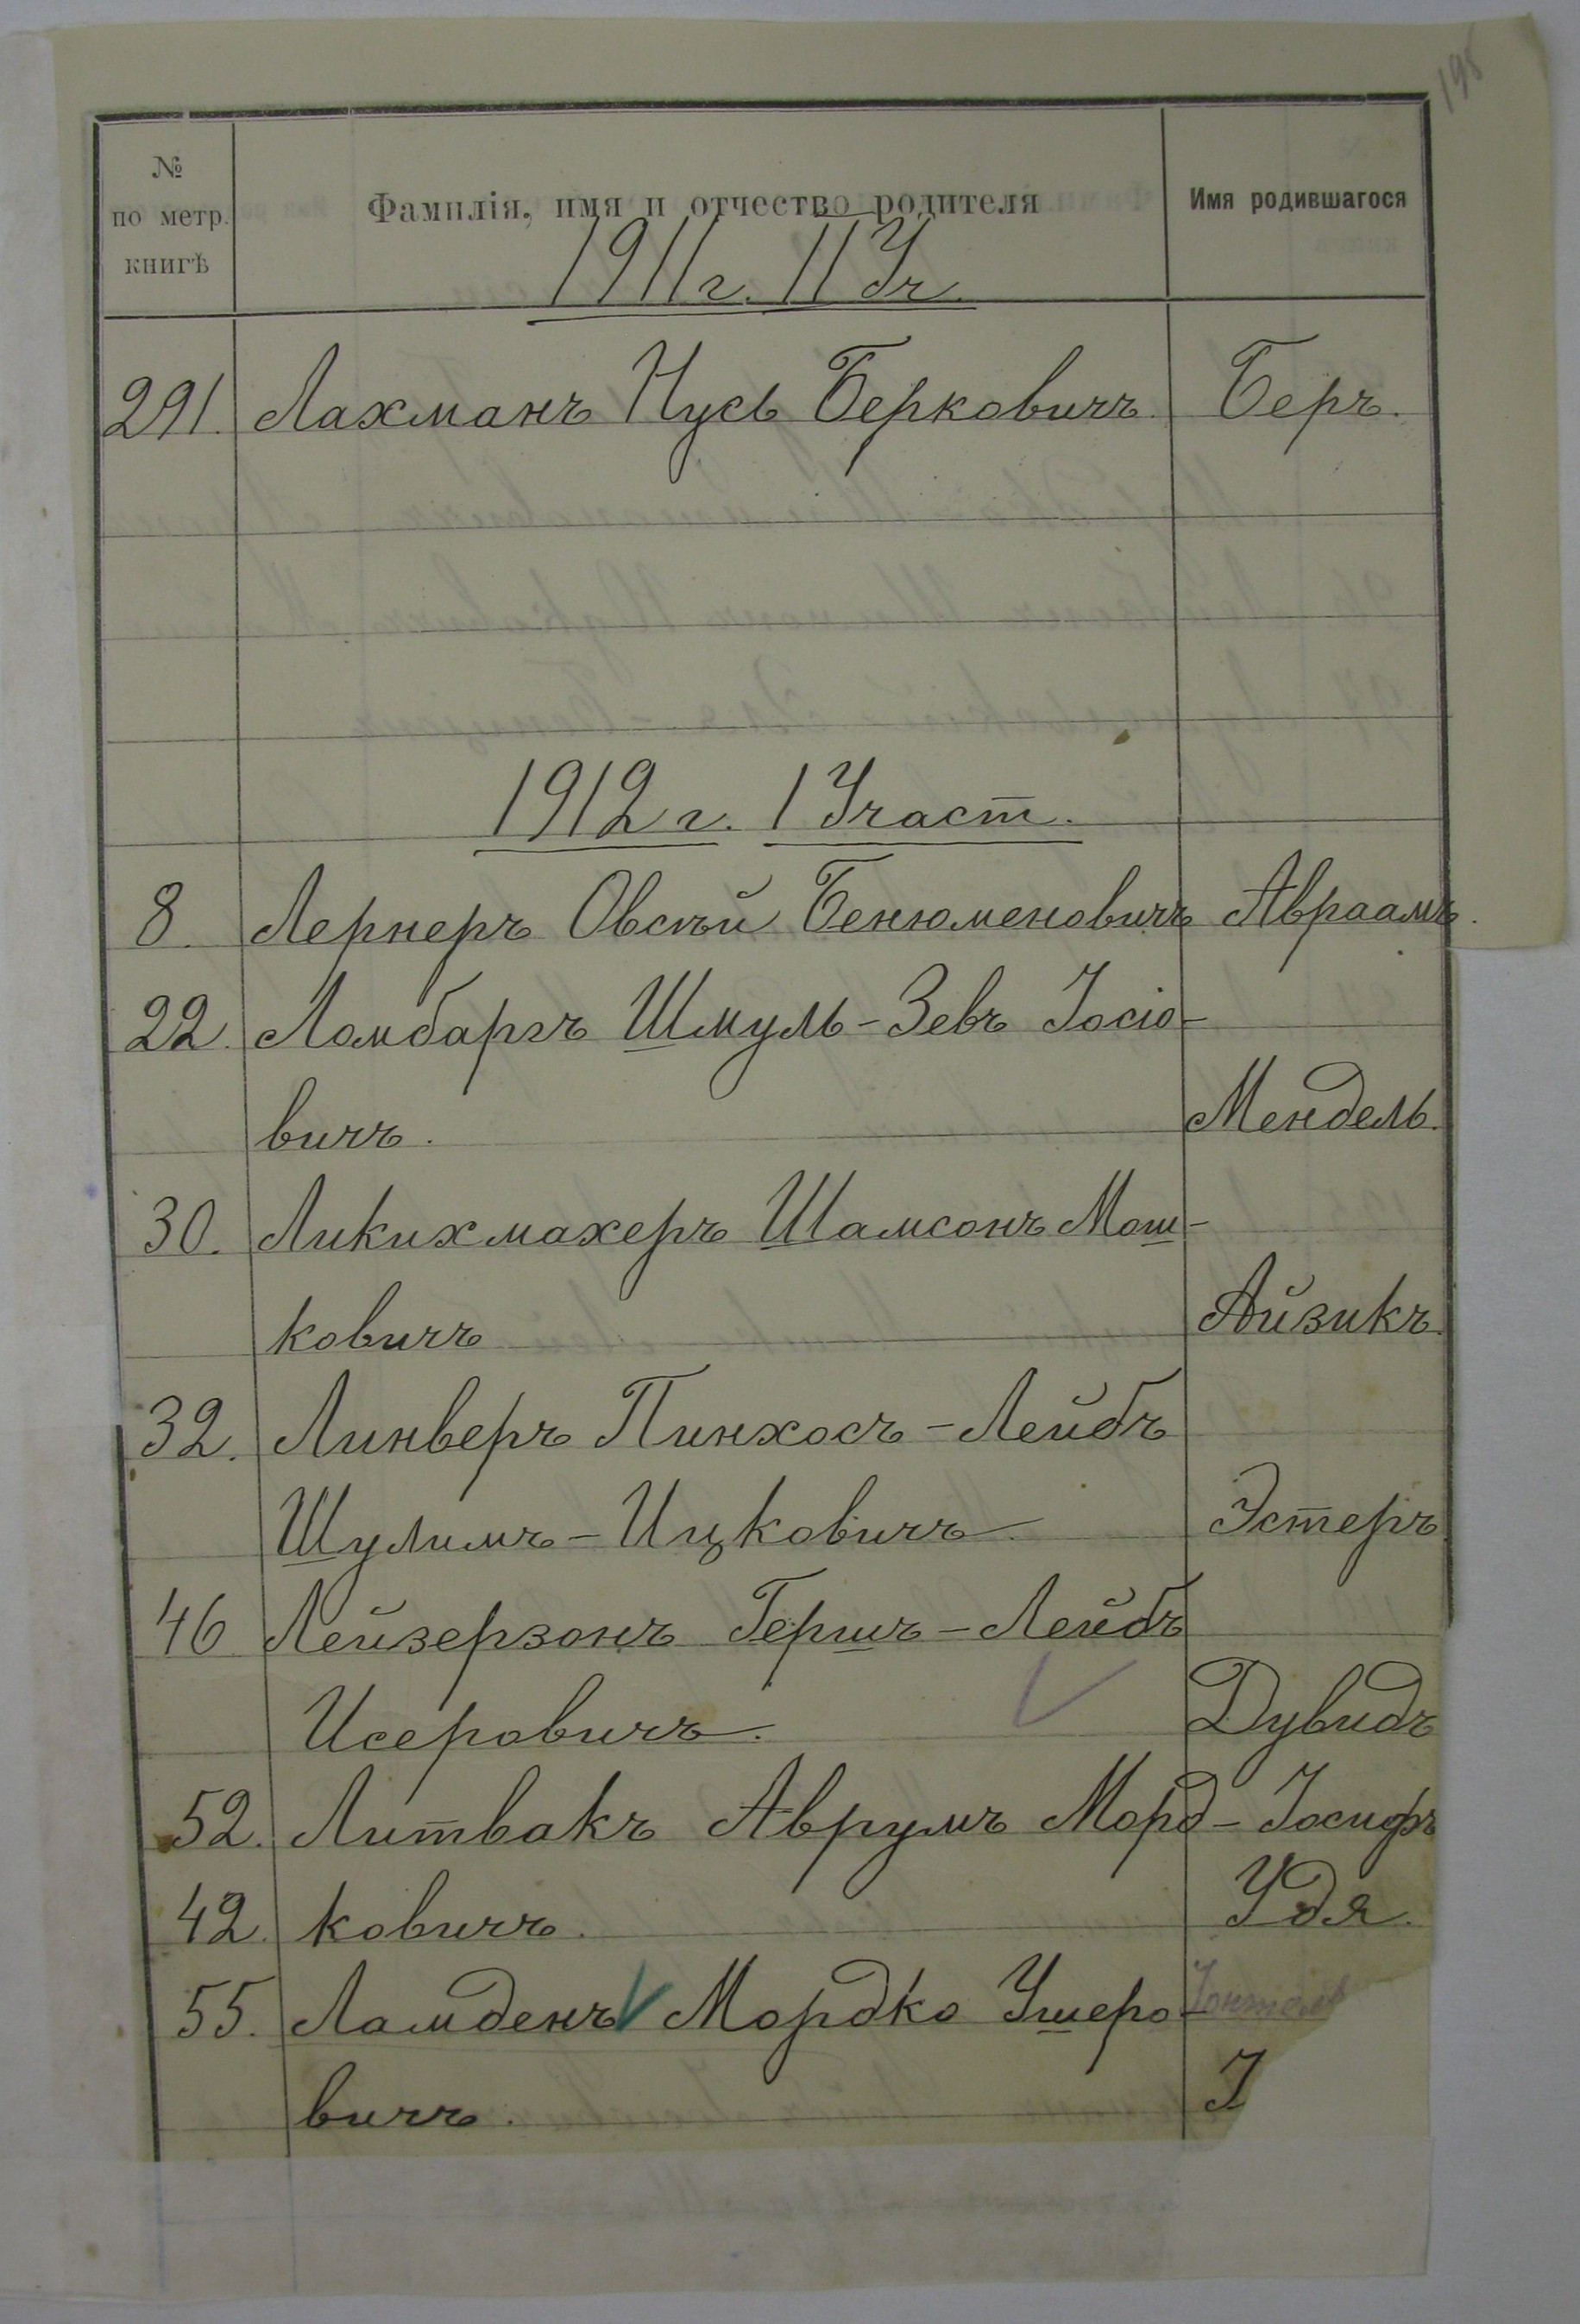 195
№ по метр. книгѣ
Фамилія, имя и отчество родителя
Имя родившагося
1911 г. II Уч.
291. Лахманъ Нусь Берковичъ. Беръ.
1912 г. I Участ.
8. Лернеръ Овсѣй Бенюменовичъ Авраамъ.
22. Ломбаргъ Шмуль-Зевъ Іосіо-
вичъ. Мендель.
30. Ликихмахеръ Шамсонъ Мош-
ковичъ Айзикъ.
32. Линверъ Пинхосъ-Лейбъ
Шулимъ-Ицковичъ Эстеръ
46 Лейзерзонъ Гершъ-Лейбъ
Исеровичъ. Дувидъ
52. Литвакъ Аврумъ Морд- Іосифъ
42. ковичъ. Удя.
55. Ламденъ Мордко Ушеро-
вичъ. І